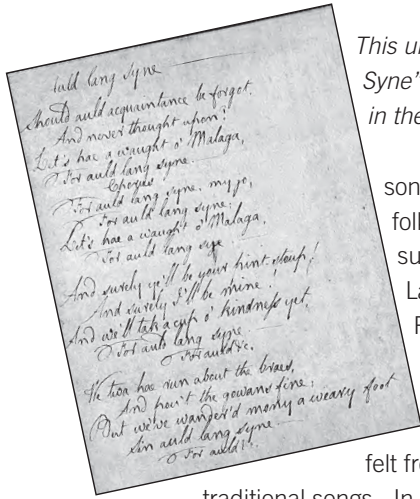 Auld lang syne
Should auld acquaintance be forgot,
And never thought upon?
Let's hae a waught o' Malaga,
For auld lang syne.
Chorus
For auld lang syne, my jo,
For auld lang syne;
Let's hae a waught o' Malaga,
For auld lang syne
And surely ye'll be your pint-stoup!
And surely I'll be mine!
And we'll tak a cup o' kindness yet,
For auld lang syne
For auld &c.
We twa hae run about the braes,
And pou't the gowans fine;
But we've wander'd mony a weary foot
Sin auld lang syne
For auld &c.
This
Syne'
in the
son
foll
su
La
felt fr
traditional songs. In